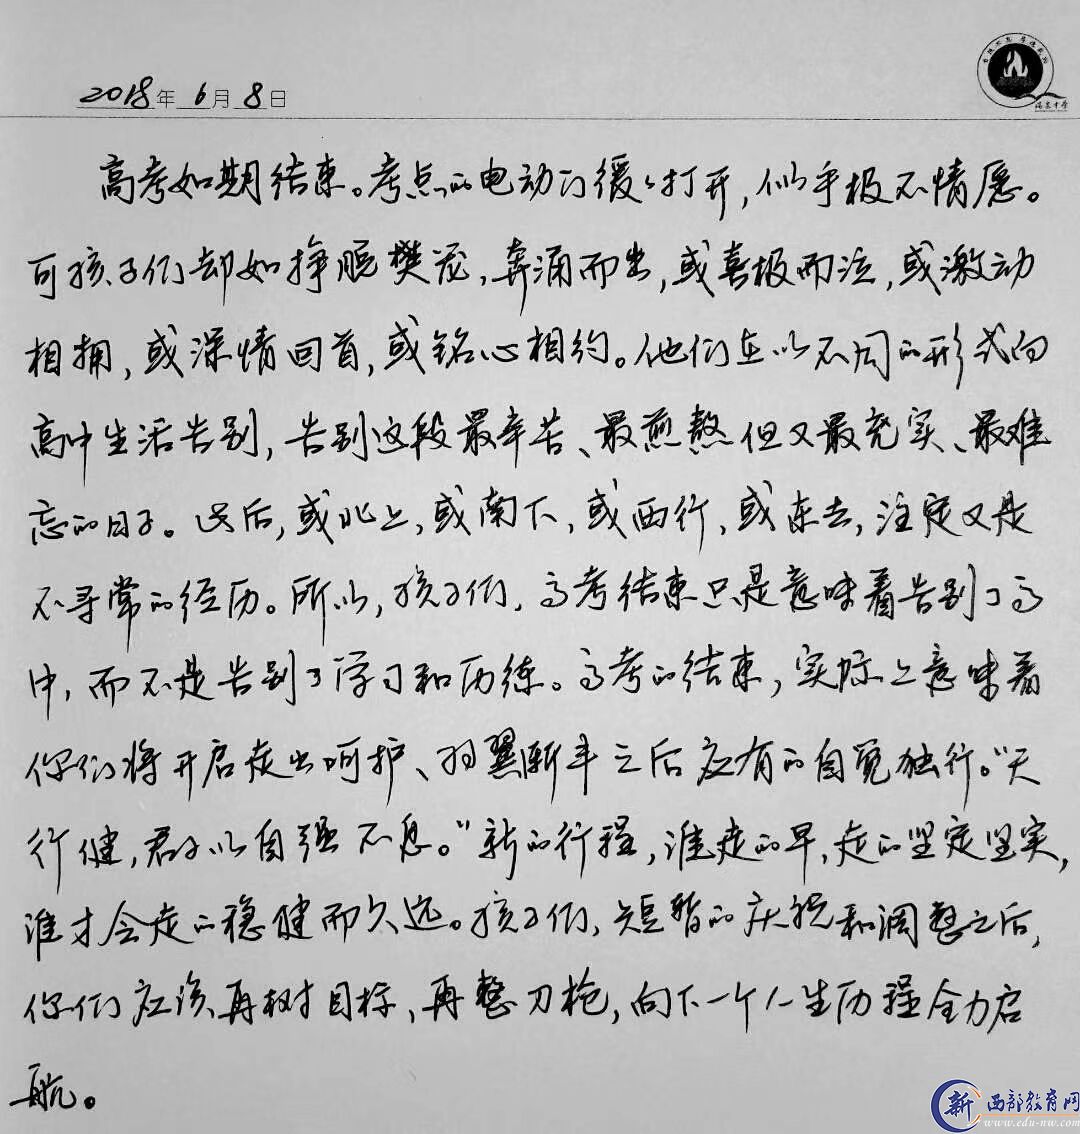 2018年6月8日
高考如期结束。考点的电动门缓缓打开,似乎极不情愿。
可孩子们却如挣脱樊笼,奔涌而出,或喜极而泣,或激动
相拥,或深情回首,或铭心相约。他们在以不同的形式向
高中生活告别,告别这段最辛苦、最煎熬但又最充实、最难
忘的日子。此后,或北上,或南下,或西行,或东去,注定又是
不寻常的经历。所以,孩子们,高考结束只是意味着告别了高
中,而不是告别了学习和历练。高考的结束,实际上意味着
你们将开启走出呵护、羽翼渐丰之后应有的自觉独行。“天
行健,君子以自强不息。”新的行程,谁走的早,走的坚定坚实,
谁才会走的稳健而久远。孩子们,短暂的庆祝和调整之后,
你们应该再树目标、再整刀枪,向下一个人生历程全力启
航。
新 西部教育网
www.edu-nw.com